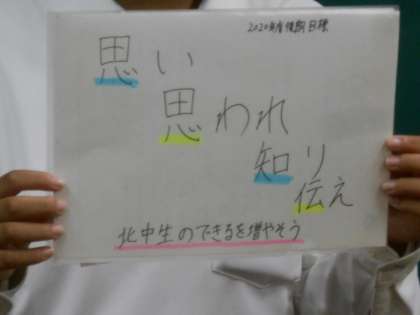 2020年度後期目標
思い
思われ
知り
伝え
北中生のできるを増やそう